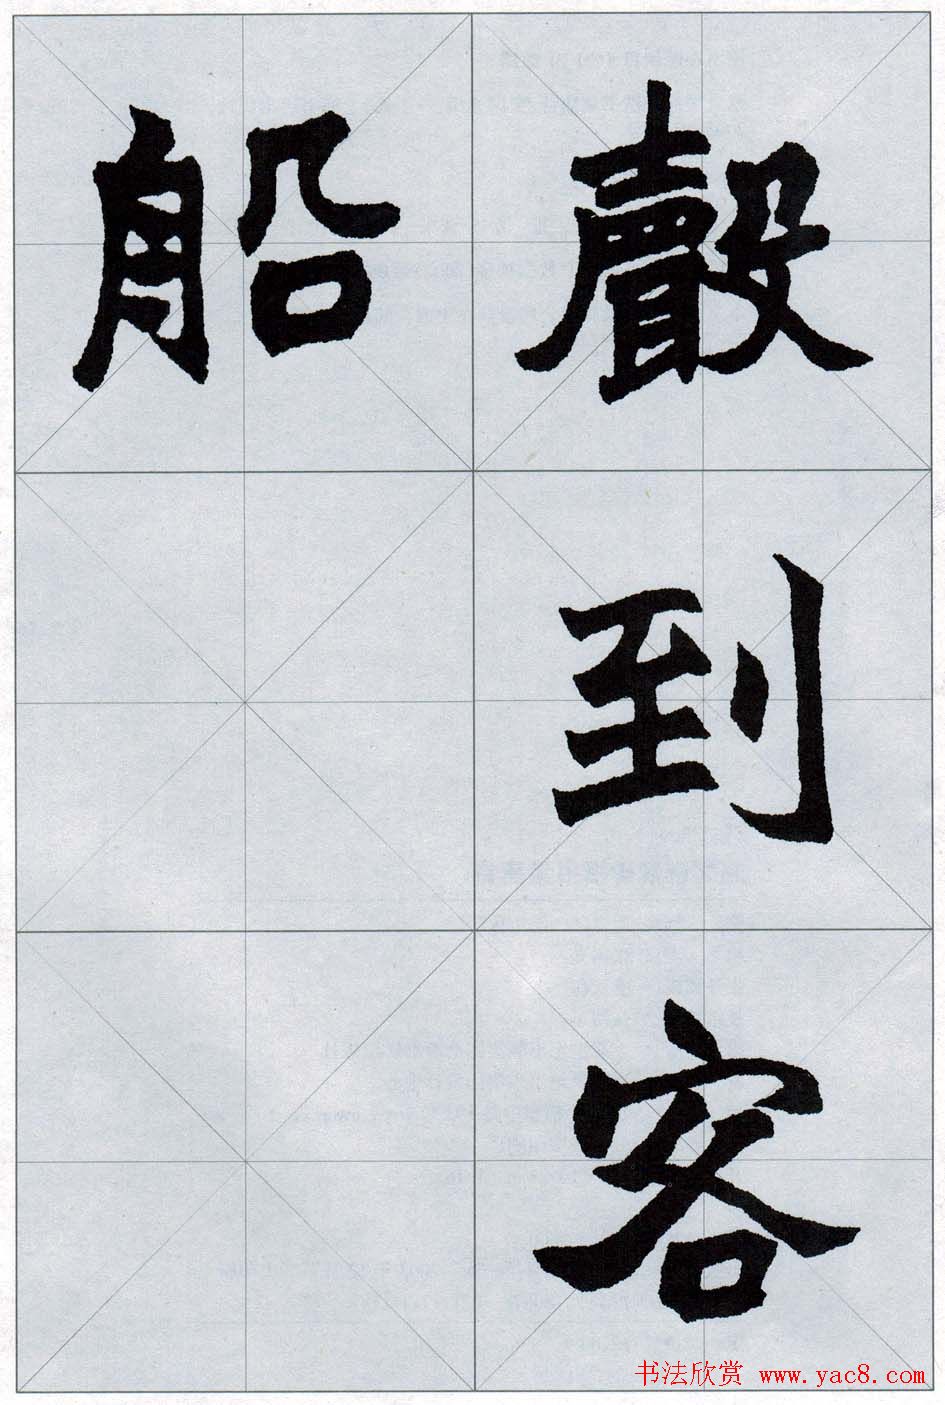 聲到客
船
书法欣赏 www.yac8.com